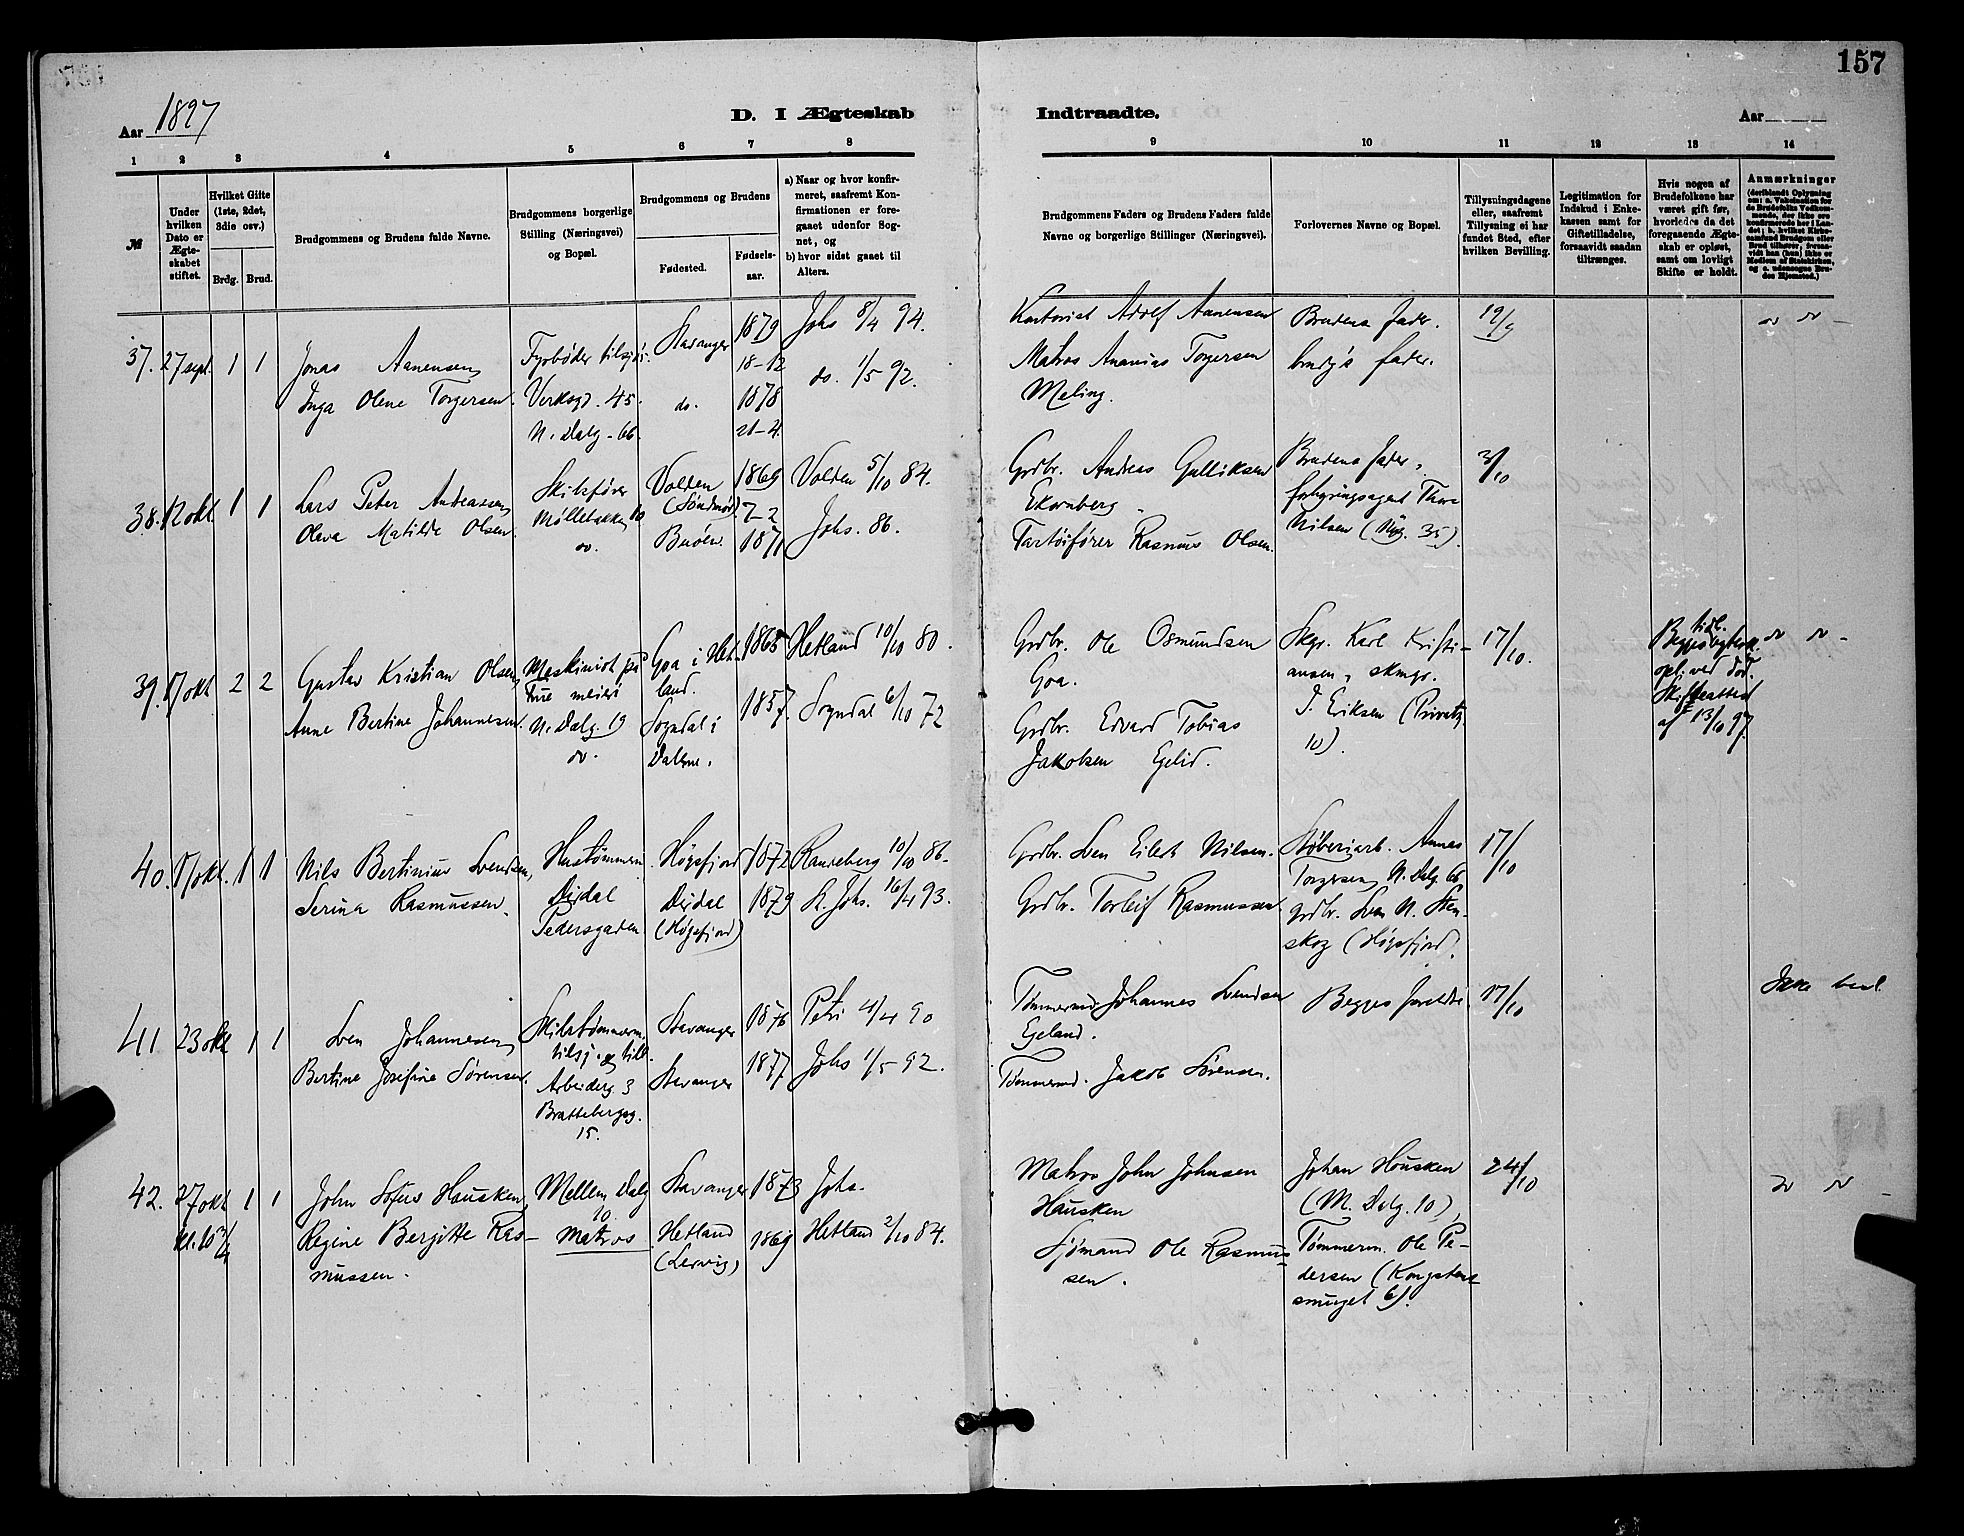 157
Aar 1897
D. I Ægteskab Indtraadte.
Aar
1 2 3 4 5 6 7 8 9 10 11 12 13 14
№
Under hvilken Dato er Ægteskabet stiftet.
Hvilket Gifte (1ste, 2det, 3die osv.)
Brdg. Brud.
Brudgommens og Brudens fulde Navne.
Brudgommens borgerlige Stilling (Næringsvei) og Bopæl.
Brudgommens og Brudens
Fødested.
Fødselsaar.
a) Naar og hvor konfirmeret, saafremt Konfirmationen er foregaaet udenfor Sognet, og
b) hvor sidst gaaet til Alters.
Brudgommens Faders og Brudens Faders fulde Navne og borgerlige Stillinger (Næringsvei).
Forlovernes Navne og Bopæl.
Tillysningsdagene eller, saafremt Tillysning ei har fundet Sted, efter hvilken Bevilling.
Legitimation for Indskud i Enkekassen samt for Giftetilladelse, forsaavidt saadan tiltrænges.
Hvis nogen af Brudefolkene har været gift før, hvorledes da det foregaaende Ægteskab er opløst, samt om lovligt Skifte er holdt.
Anmærkninger
37. 27 sept. 1 1
Jonas Aanensen,
Inga Olene Torgersen.
Fyrbøder tilsjøs.
Verksgd. 45.
N. Dalg. 66.
Stavanger
do.
1879
18-12
1878
21-4
Johs 8/4 94.
do. 1/5 92.
Kontorist Adolf Aanensen
Matros Ananias Torgersen
Meling.
Brudens fader.
brudg's fader.
19/9
38. 12 okt. 1 1
Lars Peter Andreassen,
Oleva Matilde Olsen.
Skibsfører
Møllebakken 10
do.
Volden
(Søndmør).
Buøen.
1869
7-2
1871
Volden 5/10 84.
Johs. 86.
Grdbr. Andreas Gulliksen
Ekornberg.
Fartøifører Rasmus Olsen.
Brudens fader,
forhyringsagent Thore
Nilsen (Nyg. 35).
3/10
39. 17 okt 2 2
Gustav Kristian Olsen,
Anne Bertine Johannesen.
Maskinist på
Tue meieri
N. Dalg. 19
do.
Goa i Hetland.
Sogndal i
Dalerne.
1865
1857.
Hetland 10/10 80.
Sogndal 6/10 72
Grdbr. Ole Osmundsen
Goa.
Grdbr. Edvard Tobias
Jakobsen Egelid.
Skpr. Karl Kristiansen, skmgr.
I. Eriksen (Privatg.
10).
17/10.
Begges tidl. ægtesk.
opl. ved død.
Skifteattest
af 13/10 97.
40. 17 okt. 1 1
Nils Bertinius Svendsen,
Serina Rasmussen.
Hustømmerm.
Dirdal
Pedersgaden
Høgsfjord
Dirdal
(Høgsfjord)
1872
1879
Ranneberg 10/10 86.
St. Johs. 16/4 93.
Grdbr. Sven Eilert Nilsen.
Grdbr. Torleif Rasmussen
Støberiarb. Annas
Torgersen, N. Dalg. 66
grdbr. Sven N. Stenskog (Høgsfjord).
17/10
41 23 okt 1 1
Sven Johannesen,
Bertine Josefine Sørensen.
Skibstømmerm.
tilsj. og till.
Arbeiderg. 3
Brattebergsg.
15.
Stavanger
Stavanger
1876
1877
Petri 4/4 90
Johs 1/5 92.
Tømmermd. Johannes Svendsen
Egeland.
Tømmermd. Jakob Sørensen.
Begges forældre
17/10
Ikke
42. 27 okt 1 1
John Sofus Hausken,
Regine Bergitte Rasmussen.
Mellem Dalg
10
Matros
Stavanger
Hetland
(Lervig)
1873
1869
Johs.
Hetland 2/10 84.
Matros John Johnsen
Hausken
Sjømand Ole Rasmussen.
Johan Housken
(M. Dalg. 10),
Tømmerm. Ole Pedersen (Kongstensmuget 6).
24/10